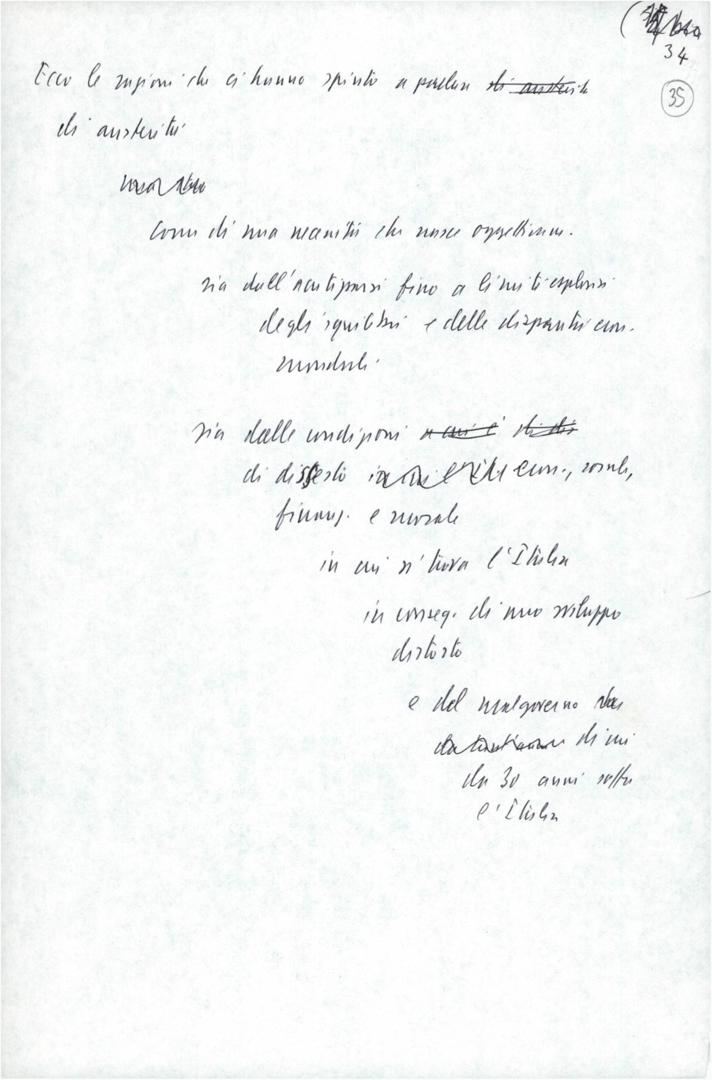 34
35
Ecco le ragioni che ci hanno spinto a parlare di austerità
di austerità
Come di una necessità che nasce oggettivam.
sia dall'acutizzarsi fino a limiti esplosivi
degli squilibri e delle disparità econ.
mondiali
sia dalle condizioni a cui è
di dissesto econ., sociale,
finanz. e morale
in cui si trova l'Italia
in conseg. di uno sviluppo
distorto
e del malgoverno
di cui
da 30 anni soffre
l'Italia